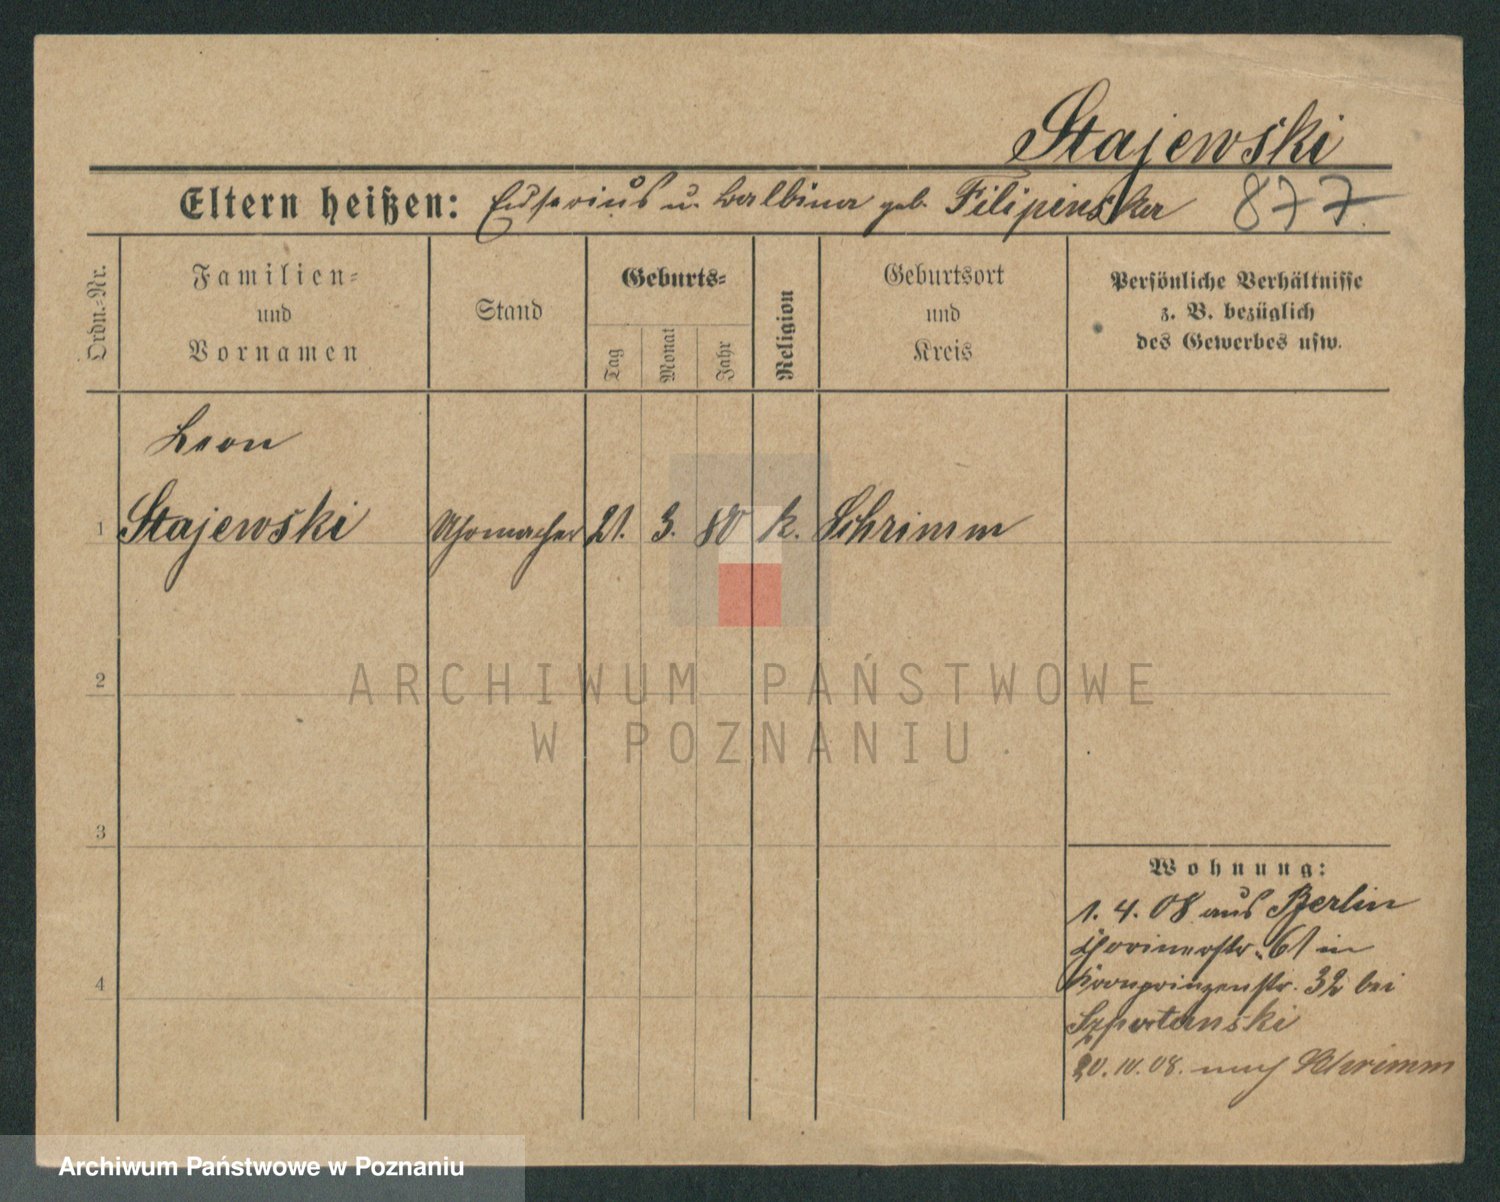 Stajewski
Eltern heißen: u. Balbina geb. Filipinska 877.
Ordn.-Nr.
Familien-
und
Vornamen
Stand
Geburts-
Tag
Monat
Jahr
Religion
Geburtsort
und
Kreis
Persönliche Verhältnisse
z. B. bezüglich
des Gewerbes usw.
Leon
1 Stajewski Uhrmacher 21. 3. 80 k. Schrimm
2
3
4
Wohnung:
1. 4. 08 aus Berlin
61 in
Kronprinzenstr. 32 bei
Szpotanski
20. 10. 08. nach Schrimm
ARCHIWUM PAŃSTWOWE
W POZNANIU
Archiwum Państwowe w Poznaniu